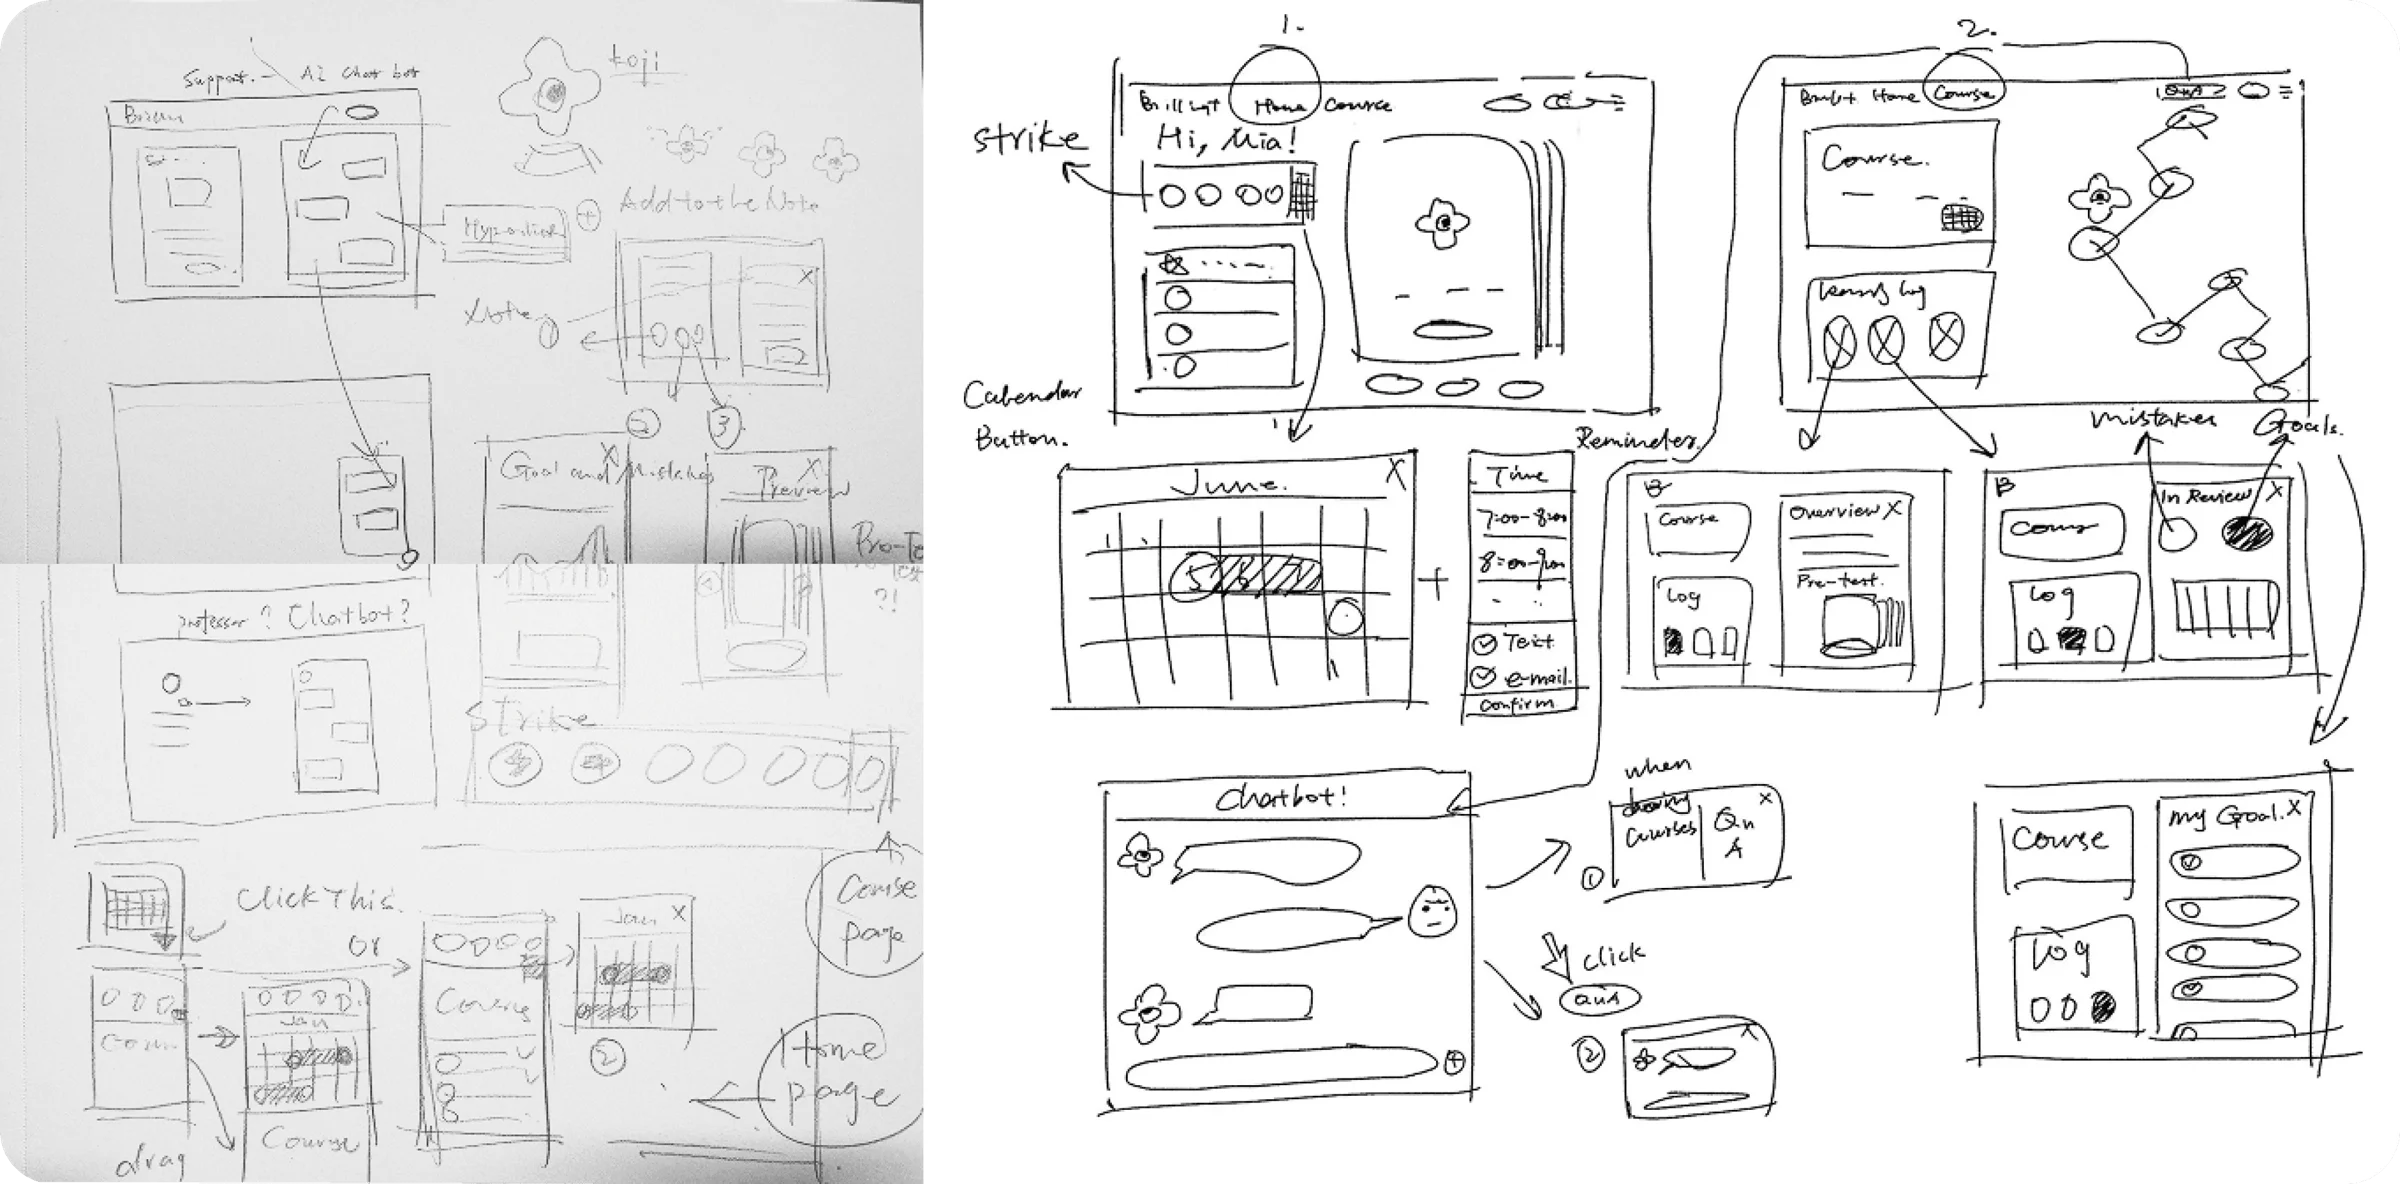 Support. - AI Chat bot
koji
Add to the Note
Hyperlink
2
3
Goal and Mistakes X
Preview X
Pro-Te
Test
?!
professor? Chatbot?
Strike
Click This.
or
Jan X
Course
page
Jan
Course
2
Home
page
Course
drag
1.
Brilliant Home Course
strike
Hi, Mia!
Calendar
Button.
June. X
5 6 7
+
Reminder.
Time
7:00-8:00
8:00-9:00
Text
e-mail.
Confirm
2.
Home Course QnA
Course.
Learning Log
mistakes
Goals.
B
Course
Log
Overview X
Pre-test.
B
Log
In Review X
Chatbot!
when
during
Courses
QnA
X
1
click
QnA
2
X
Course
Log
my Goal. X